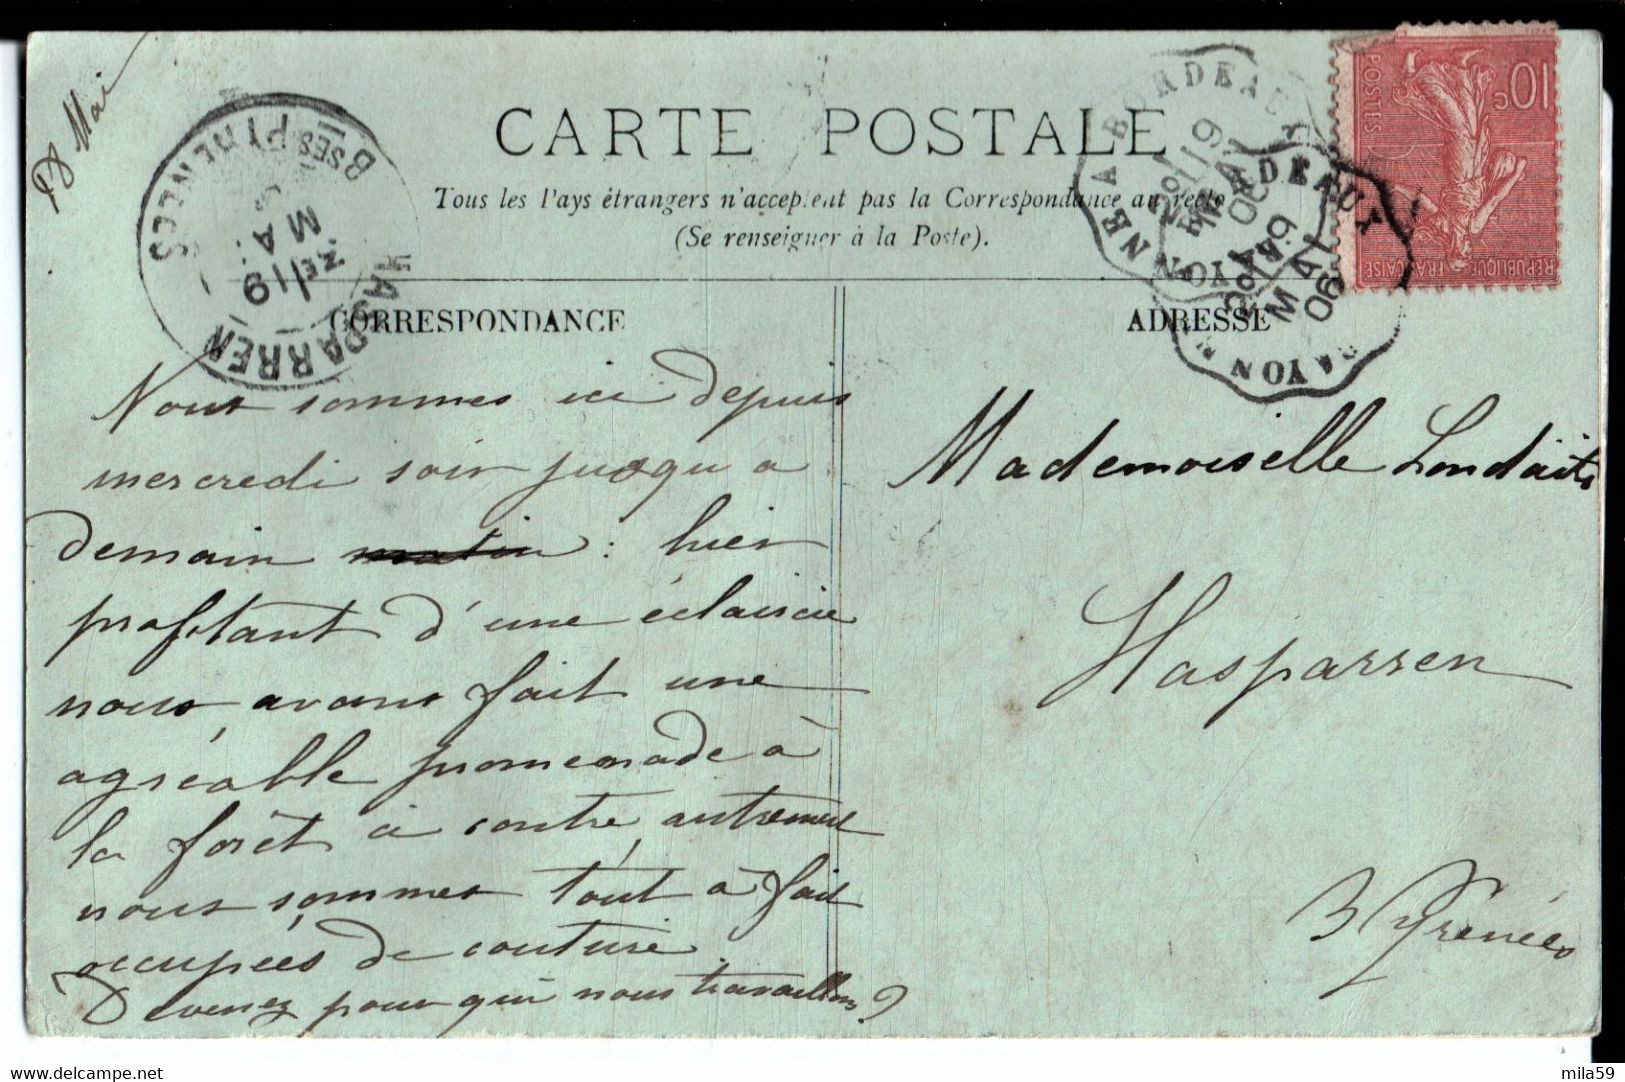 18 Mai
CARTE POSTALE
Tous les Pays étrangers n'acceptent pas la Correspondance au recto
(Se renseigner à la Poste).
CORRESPONDANCE
Nous sommes ici depuis
mercredi soir jusqu'a
demain matin : hier
profitant d'une éclaircie
nous avons fait une
agréable promenade à
la forêt à contré, autrement
nous sommes tout à fait
occupées de couture
Devenez pour qui nous travaillons?
ADRESSE
Mademoiselle Londaïts
Hasparren
B Pyrénées
HASPARREN
BSES PYRENEES
MAI
BAYONNE A BORDEAUX
19 MAI
BAYONNE A BORDEAUX
19 MAI
10c
POSTES
REPUBLIQUE FRANÇAISE
mila59